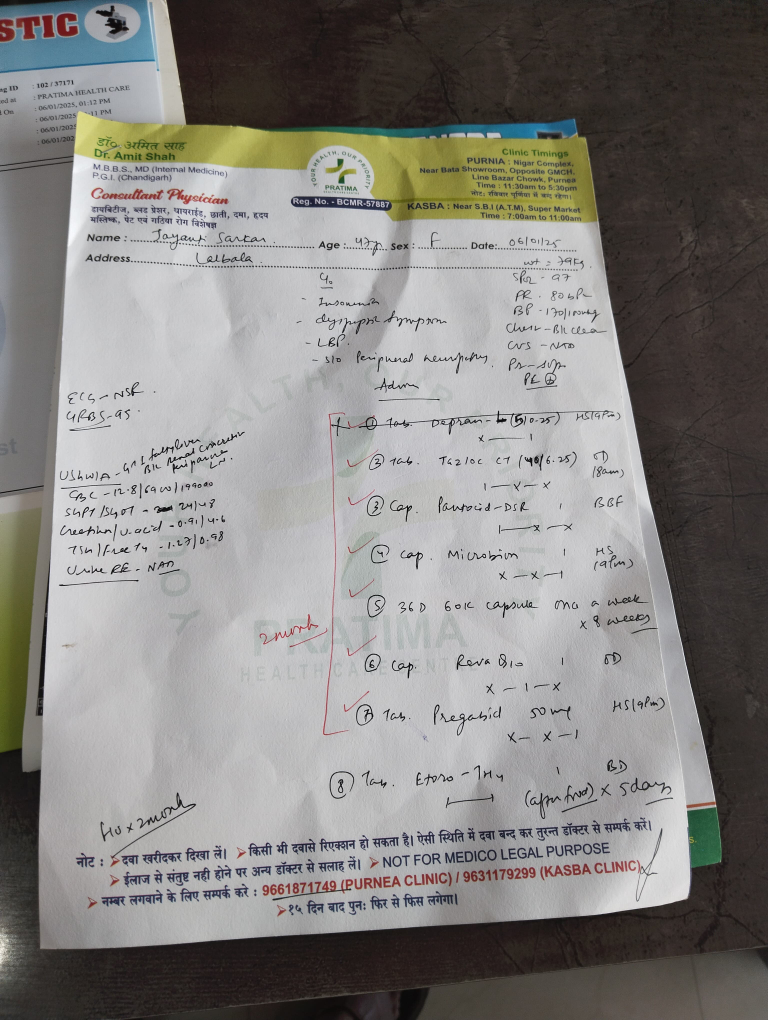 STIC
ng ID : 102 / 37171
: PRATIMA HEALTH CARE
: 06/01/2025, 01:12 PM
डॉ० अमित साह
Dr. Amit Shah
M.B.B.S., MD (Internal Medicine)
P.G.I. (Chandigarh)
Consultant Physician
डायबिटीज, ब्लड प्रेशर, थायराईड, छाती, दमा, हृदय
मस्तिष्क, पेट एवं गठिया रोग विशेषज्ञ
YOUR HEALTH, OUR PRIORITY
PRATIMA
Reg. No. - BCMR-57887
Clinic Timings
PURNIA : Nigar Complex,
Near Bata Showroom, Opposite GMCH,
Line Bazar Chowk, Purnea
Time : 11:30am to 5:30pm
KASBA : Near S.B.I (A.T.M), Super Market
Time : 7:00am to 11:00am
Name : Jayanti Sarkar Age : 47y Sex : F Date: 06/01/25
Address Lalbala
wt = 79kg
SPO2 - 97
PR - 80 bpm
BP - 170/100mmHg
Chest - BIL clear
CVS - NAD
C/o
- Insomnia
- dyspeptic symptom
- LBP
- S/O Peripheral neuropathy.
PE +
Advice
ECG - NSR
GRBS - 95
USG W/A - Gr I fatty liver
BIL renal concretion
CBC - 12.8/6900/199000
SGPT/SGOT - 24/48
Creatinin/U.acid - 0.91/4.6
TSH/Free T4 - 1.27/0.98
Urine RE - NAD
① Tab. Depran-L (5/0.25) HS (9pm)
x — 1
② Tab. Tazloc CT (40/6.25) OD (8am)
1 — x — x
③ Cap. Pantocid-DSR 1 BBF
1 — x — x
④ Cap. Microbion 1 HS (9pm)
x — x — 1
⑤ 36D 60K capsule once a week x 8 weeks
⑥ Cap. Reva Q10 1 OD
x — 1 — x
⑦ Tab. Pregabid 50mg HS (9pm)
x — x — 1
2 month
⑧ Tab. Etoro-TH4 1 BD
(after food) x 5 days
F/O x 2 month
PRATIMA
HEALTH CARE CENTRE
नोट : ➢ दवा खरीदकर दिखा लें। ➢ किसी भी दवासे रिएक्शन हो सकता है। ऐसी स्थिति में दवा बन्द कर तुरन्त डॉक्टर से सम्पर्क करें।
➢ ईलाज से संतुष्ट नही होने पर अन्य डॉक्टर से सलाह लें। ➢ NOT FOR MEDICO LEGAL PURPOSE
➢ नम्बर लगवाने के लिए सम्पर्क करे : 9661871749 (PURNEA CLINIC) / 9631179299 (KASBA CLINIC)
➢ १५ दिन बाद पुनः फिर से फिस लगेगा।